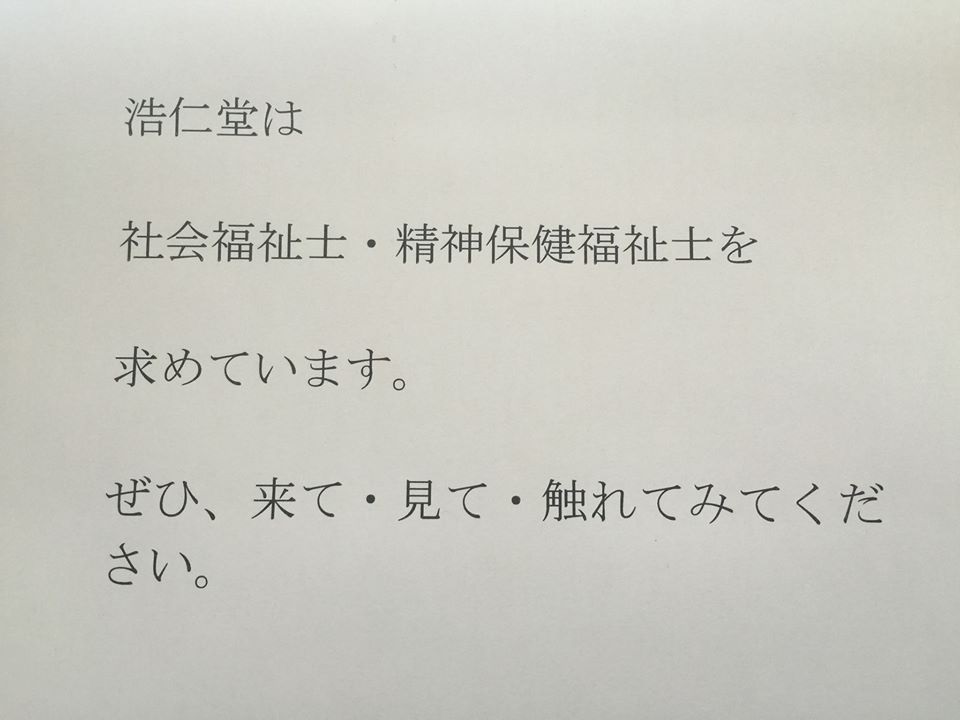 浩仁堂は
社会福祉士・精神保健福祉士を
求めています。
ぜひ、来て・見て・触れてみてくだ
さい。